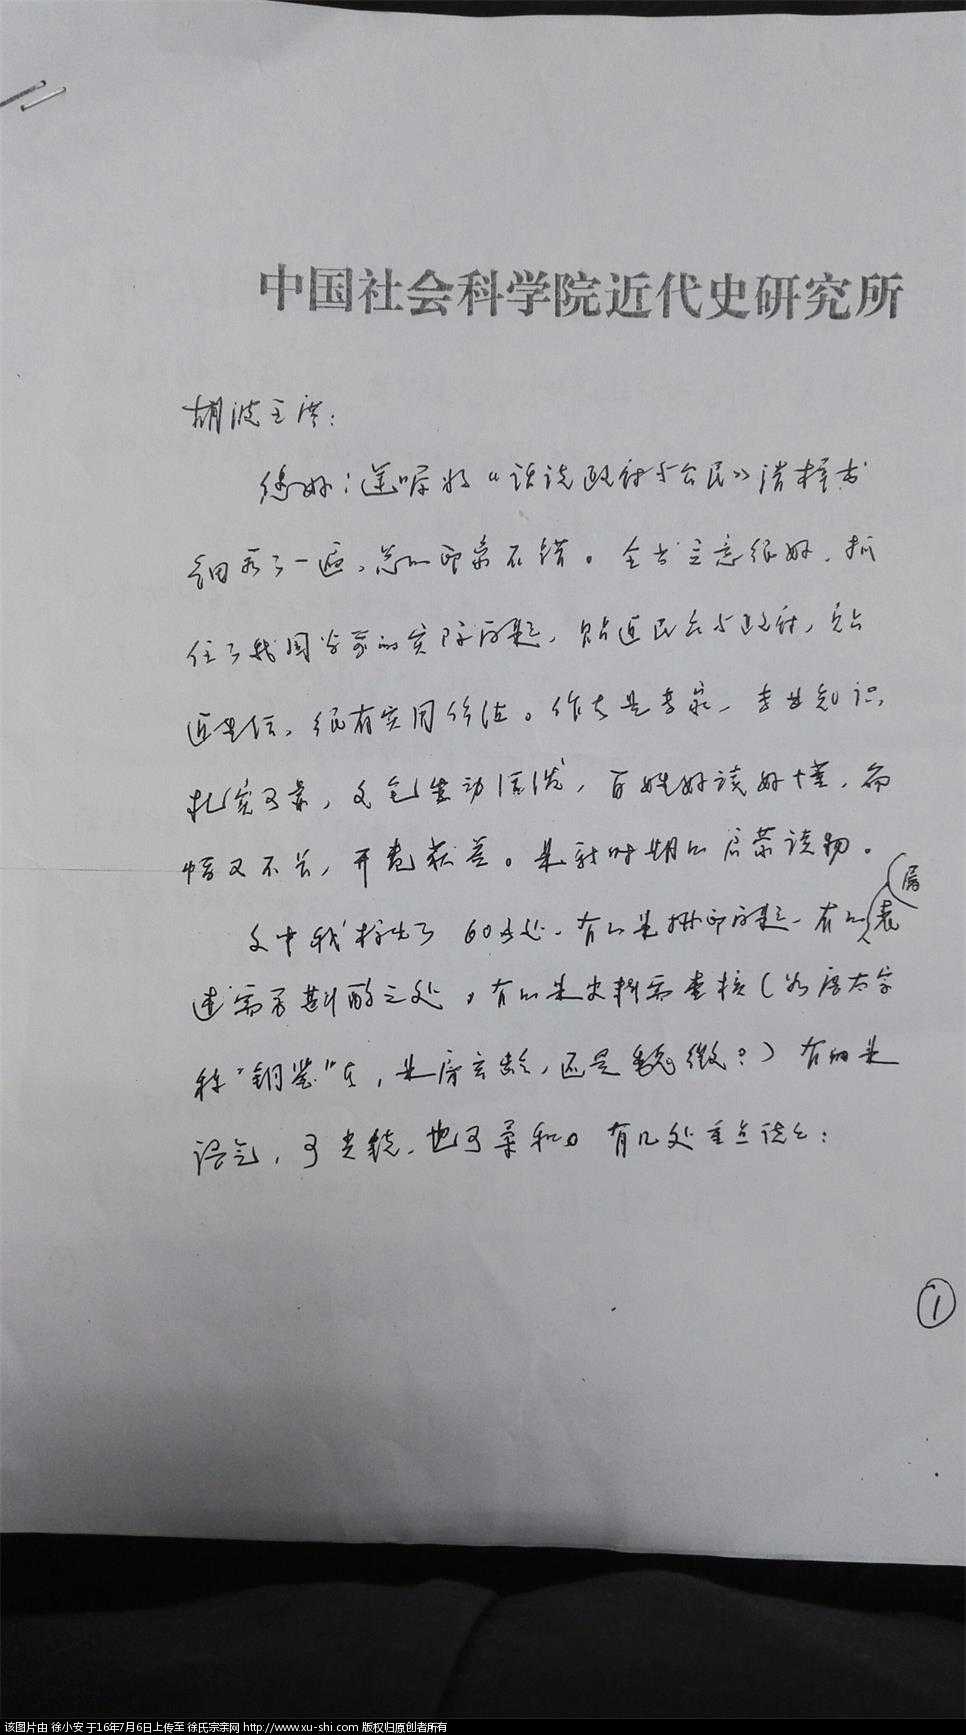 中国社会科学院近代史研究所
胡波主席：
您好！遵嘱将《话说政府与公民》清样书
细看了一遍，总的印象不错。全书立意很好，抓
住了我国当前的实际问题，贴近民众与政府，贴
近生活，很有实用价值。作者是专家，专业知识
扎实可靠，文笔生动活泼，百姓好读好懂，篇
幅又不长，开卷获益。是新时期的启蒙读物。
文中我标出了60多处，有的是排印问题，有的属表
述需再斟酌之处，有的是史料需查核（如唐太宗
称"铜鉴"者，是房玄龄，还是魏徵？）有的是
语气，可尖锐，也可柔和。有几处重点说之：
①
该图片由 徐小安 于16年7月6日上传至 徐氏宗亲网 http://www.xu-shi.com 版权归原创者所有